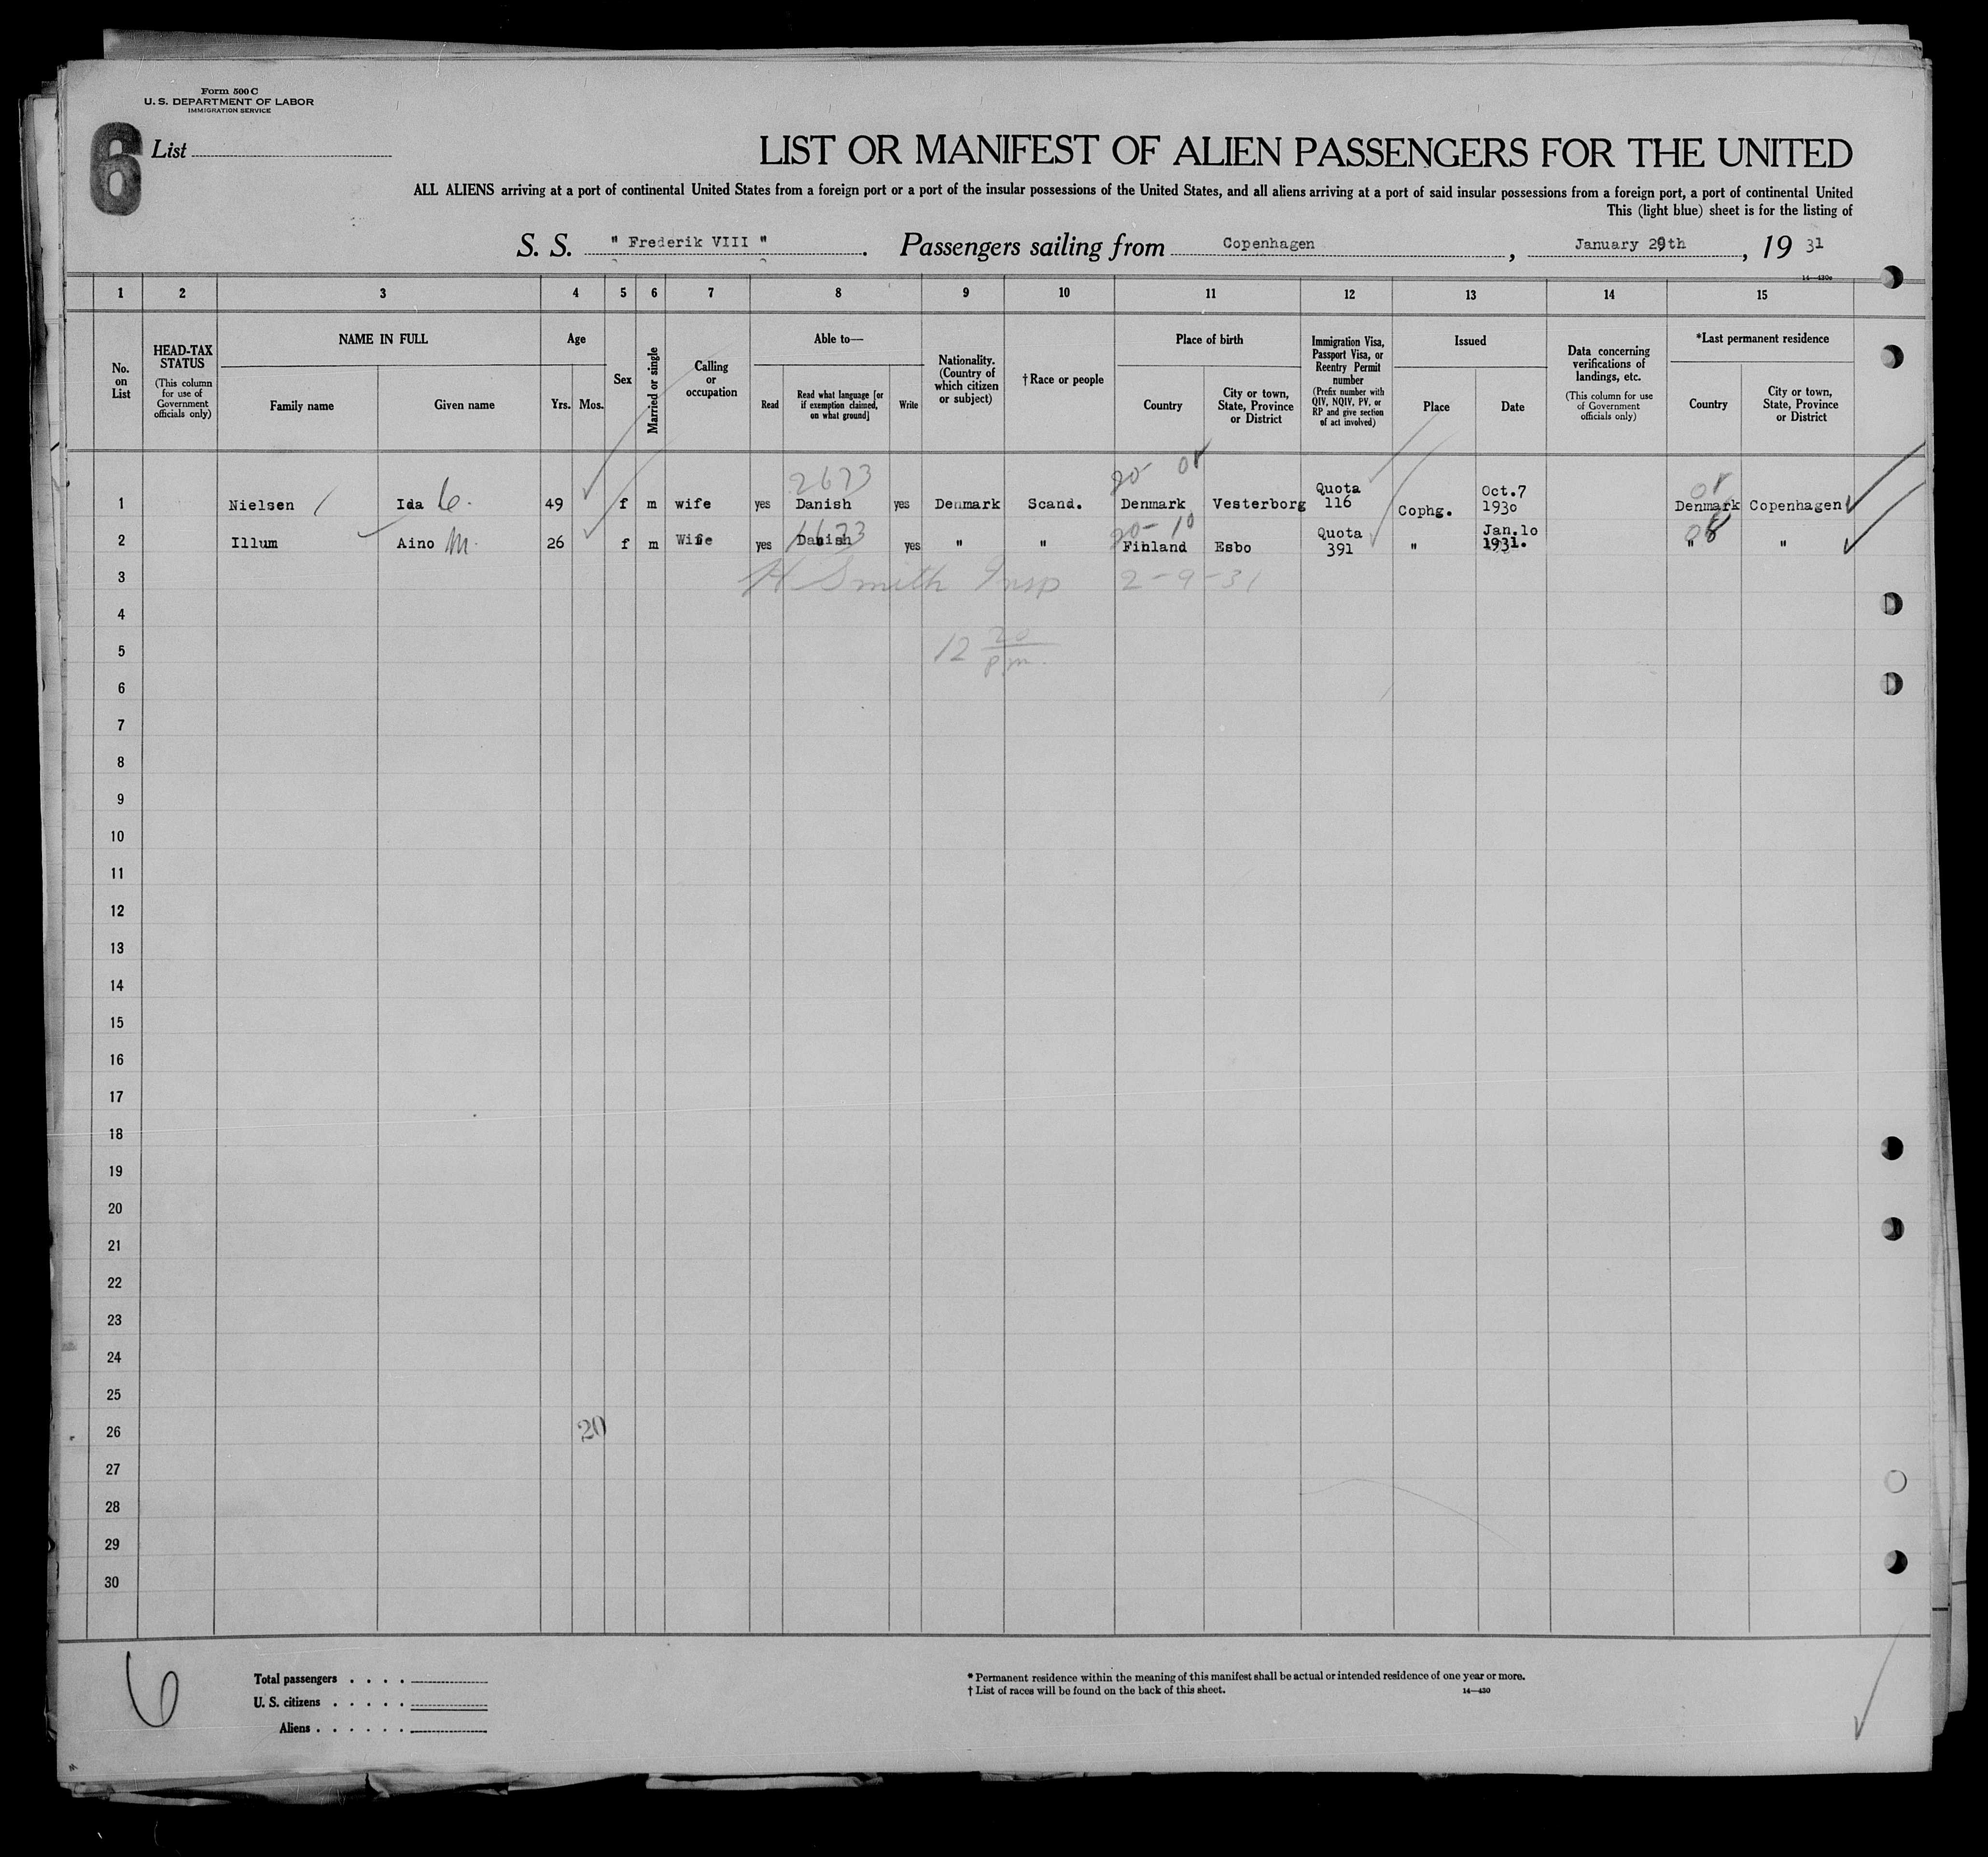 Form 500 C
U. S. DEPARTMENT OF LABOR
IMMIGRATION SERVICE
6
List
LIST OR MANIFEST OF ALIEN PASSENGERS FOR THE UNITED
ALL ALIENS arriving at a port of continental United States from a foreign port or a port of the insular possessions of the United States, and all aliens arriving at a port of said insular possessions from a foreign port, a port of continental United
This (light blue) sheet is for the listing of
S. S. " Frederik VIII " . Passengers sailing from Copenhagen , January 29th , 19 31
14—430c
1 2 3 4 5 6 7 8 9 10 11 12 13 14 15
No. on List
HEAD-TAX STATUS (This column for use of Government officials only)
NAME IN FULL
Family name Given name
Age
Yrs. Mos.
Sex
Married or single
Calling or occupation
Able to—
Read
Read what language [or if exemption claimed, on what ground]
Write
Nationality. (Country of which citizen or subject)
†Race or people
Place of birth
Country
City or town, State, Province or District
Immigration Visa, Passport Visa, or Reentry Permit number (Prefix number with QIV, NQIV, PV, or RP and give section of act involved)
Issued
Place Date
Data concerning verifications of landings, etc. (This column for use of Government officials only)
*Last permanent residence
Country
City or town, State, Province or District
2673
1 Nielsen Ida C. 49 f m wife yes Danish yes Denmark Scand. Denmark Vesterborg Quota 116 Cophg. Oct.7 1930 Denmark Copenhagen
2 Illum Aino M. 26 f m Wife yes Danish yes " " Finland Esbo Quota 391 " Jan.10 1931. " "
3 H Smith Insp 2-9-31
4
5 12 20 pm.
6
7
8
9
10
11
12
13
14
15
16
17
18
19
20
21
22
23
24
25
26 20
27
28
29
30
6
Total passengers . . . .
U. S. citizens . . . . .
Aliens . . . . . .
* Permanent residence within the meaning of this manifest shall be actual or intended residence of one year or more.
† List of races will be found on the back of this sheet.
14—430